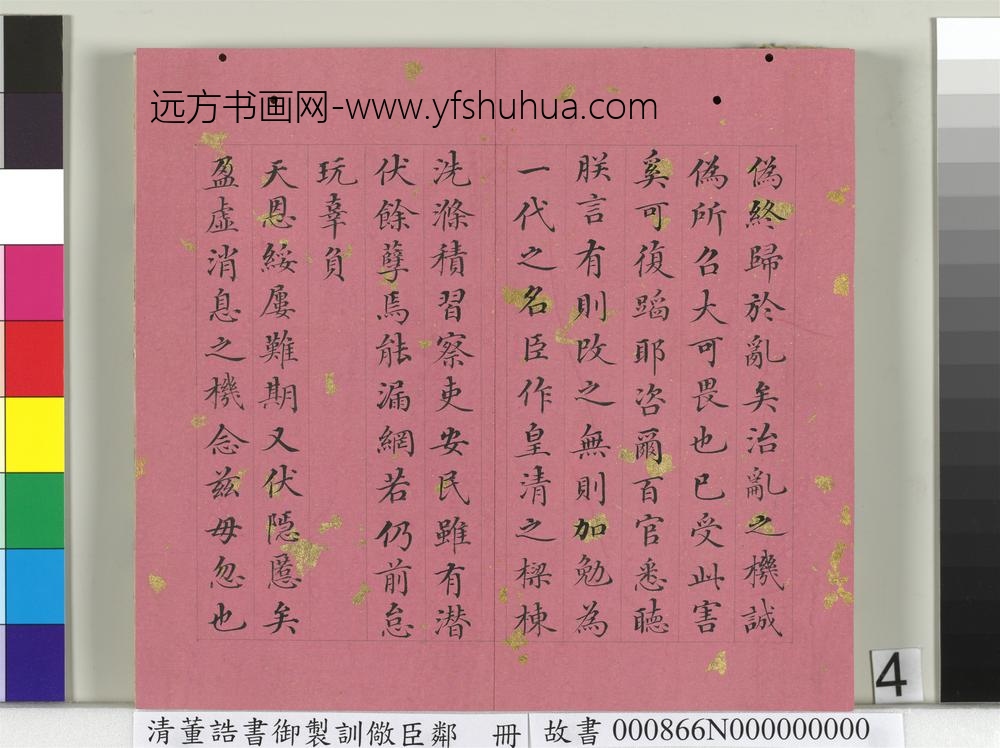 远方书画网-www.yfshuhua.com
偽終歸於亂矣治亂之機誠
偽所召大可畏也已受此害
奚可復蹈耶咨爾百官悉聽
朕言有則改之無則加勉為
一代之名臣作皇清之樑棟
洗滌積習察吏安民雖有潜
伏餘孽焉能漏網若仍前怠
玩辜負
天恩綏屢難期又伏隱慝矣
盈虛消息之機念兹毋忽也
4
清董誥書御製訓儆臣鄰 冊 故書 000866N000000000